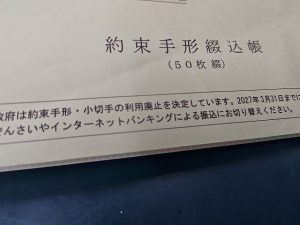 約束手形綴込帳
(50枚綴)
政府は約束手形・小切手の利用廃止を決定しています。2027年3月31日までに
でんさいやインターネットバンキングによる振込にお切り替えください。